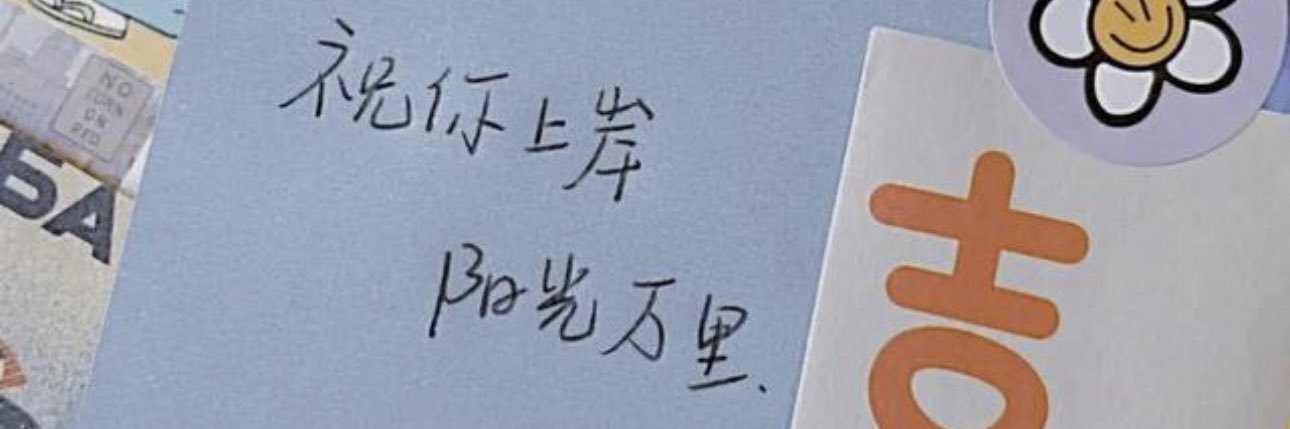 祝你上岸
阳光万里、
吉
NO
TURN
ON
RED
БА